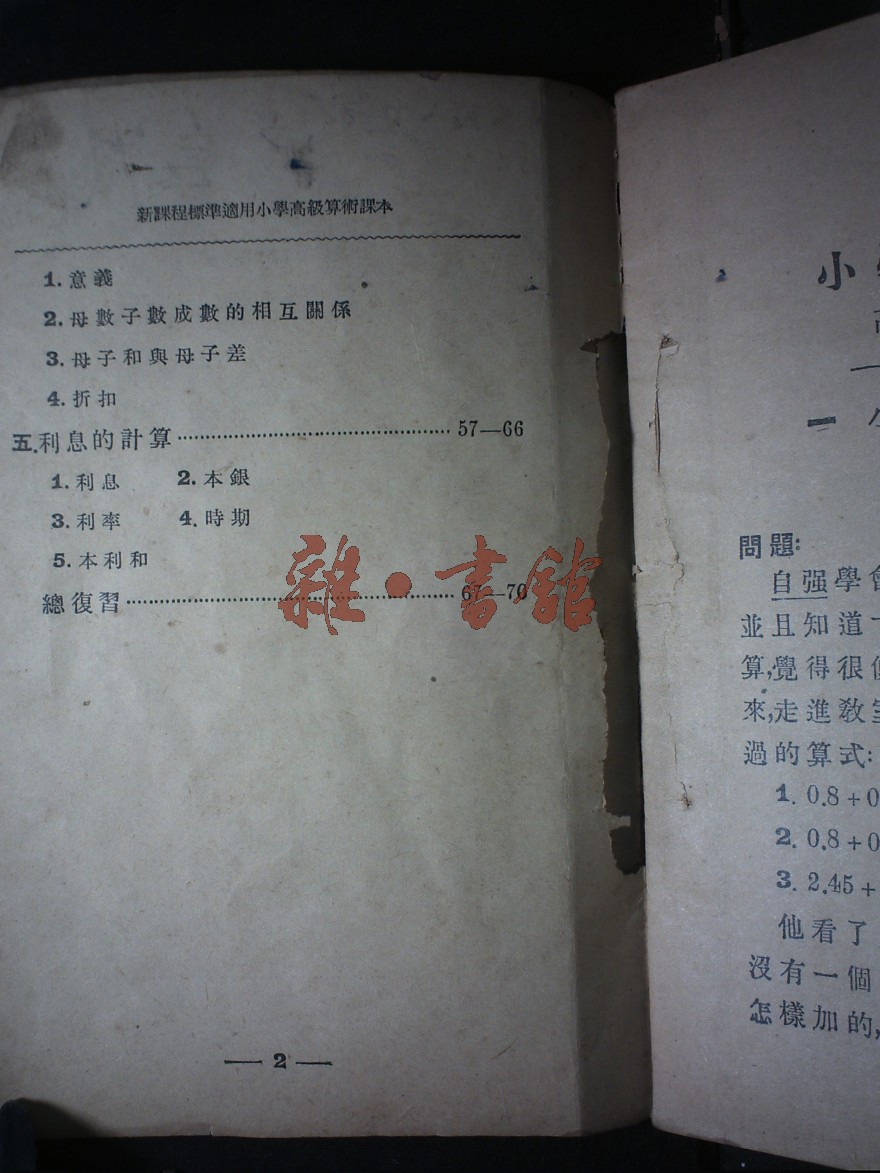 新課程標準適用小學高級算術課本
1. 意義
2. 母數子數成數的相互關係
3. 母子和與母子差
4. 折扣
五. 利息的計算 …… 57—66
1. 利息 2. 本銀
3. 利率 4. 時期
5. 本利和
總復習 …… 67—70
雜·書館
— 2 —
小
一
問題:
自强學會
並且知道
算,覺得很
來,走進教室
過的算式:
1. 0.8+0
2. 0.8+0
3. 2.45+
他看了
沒有一個
怎樣加的,